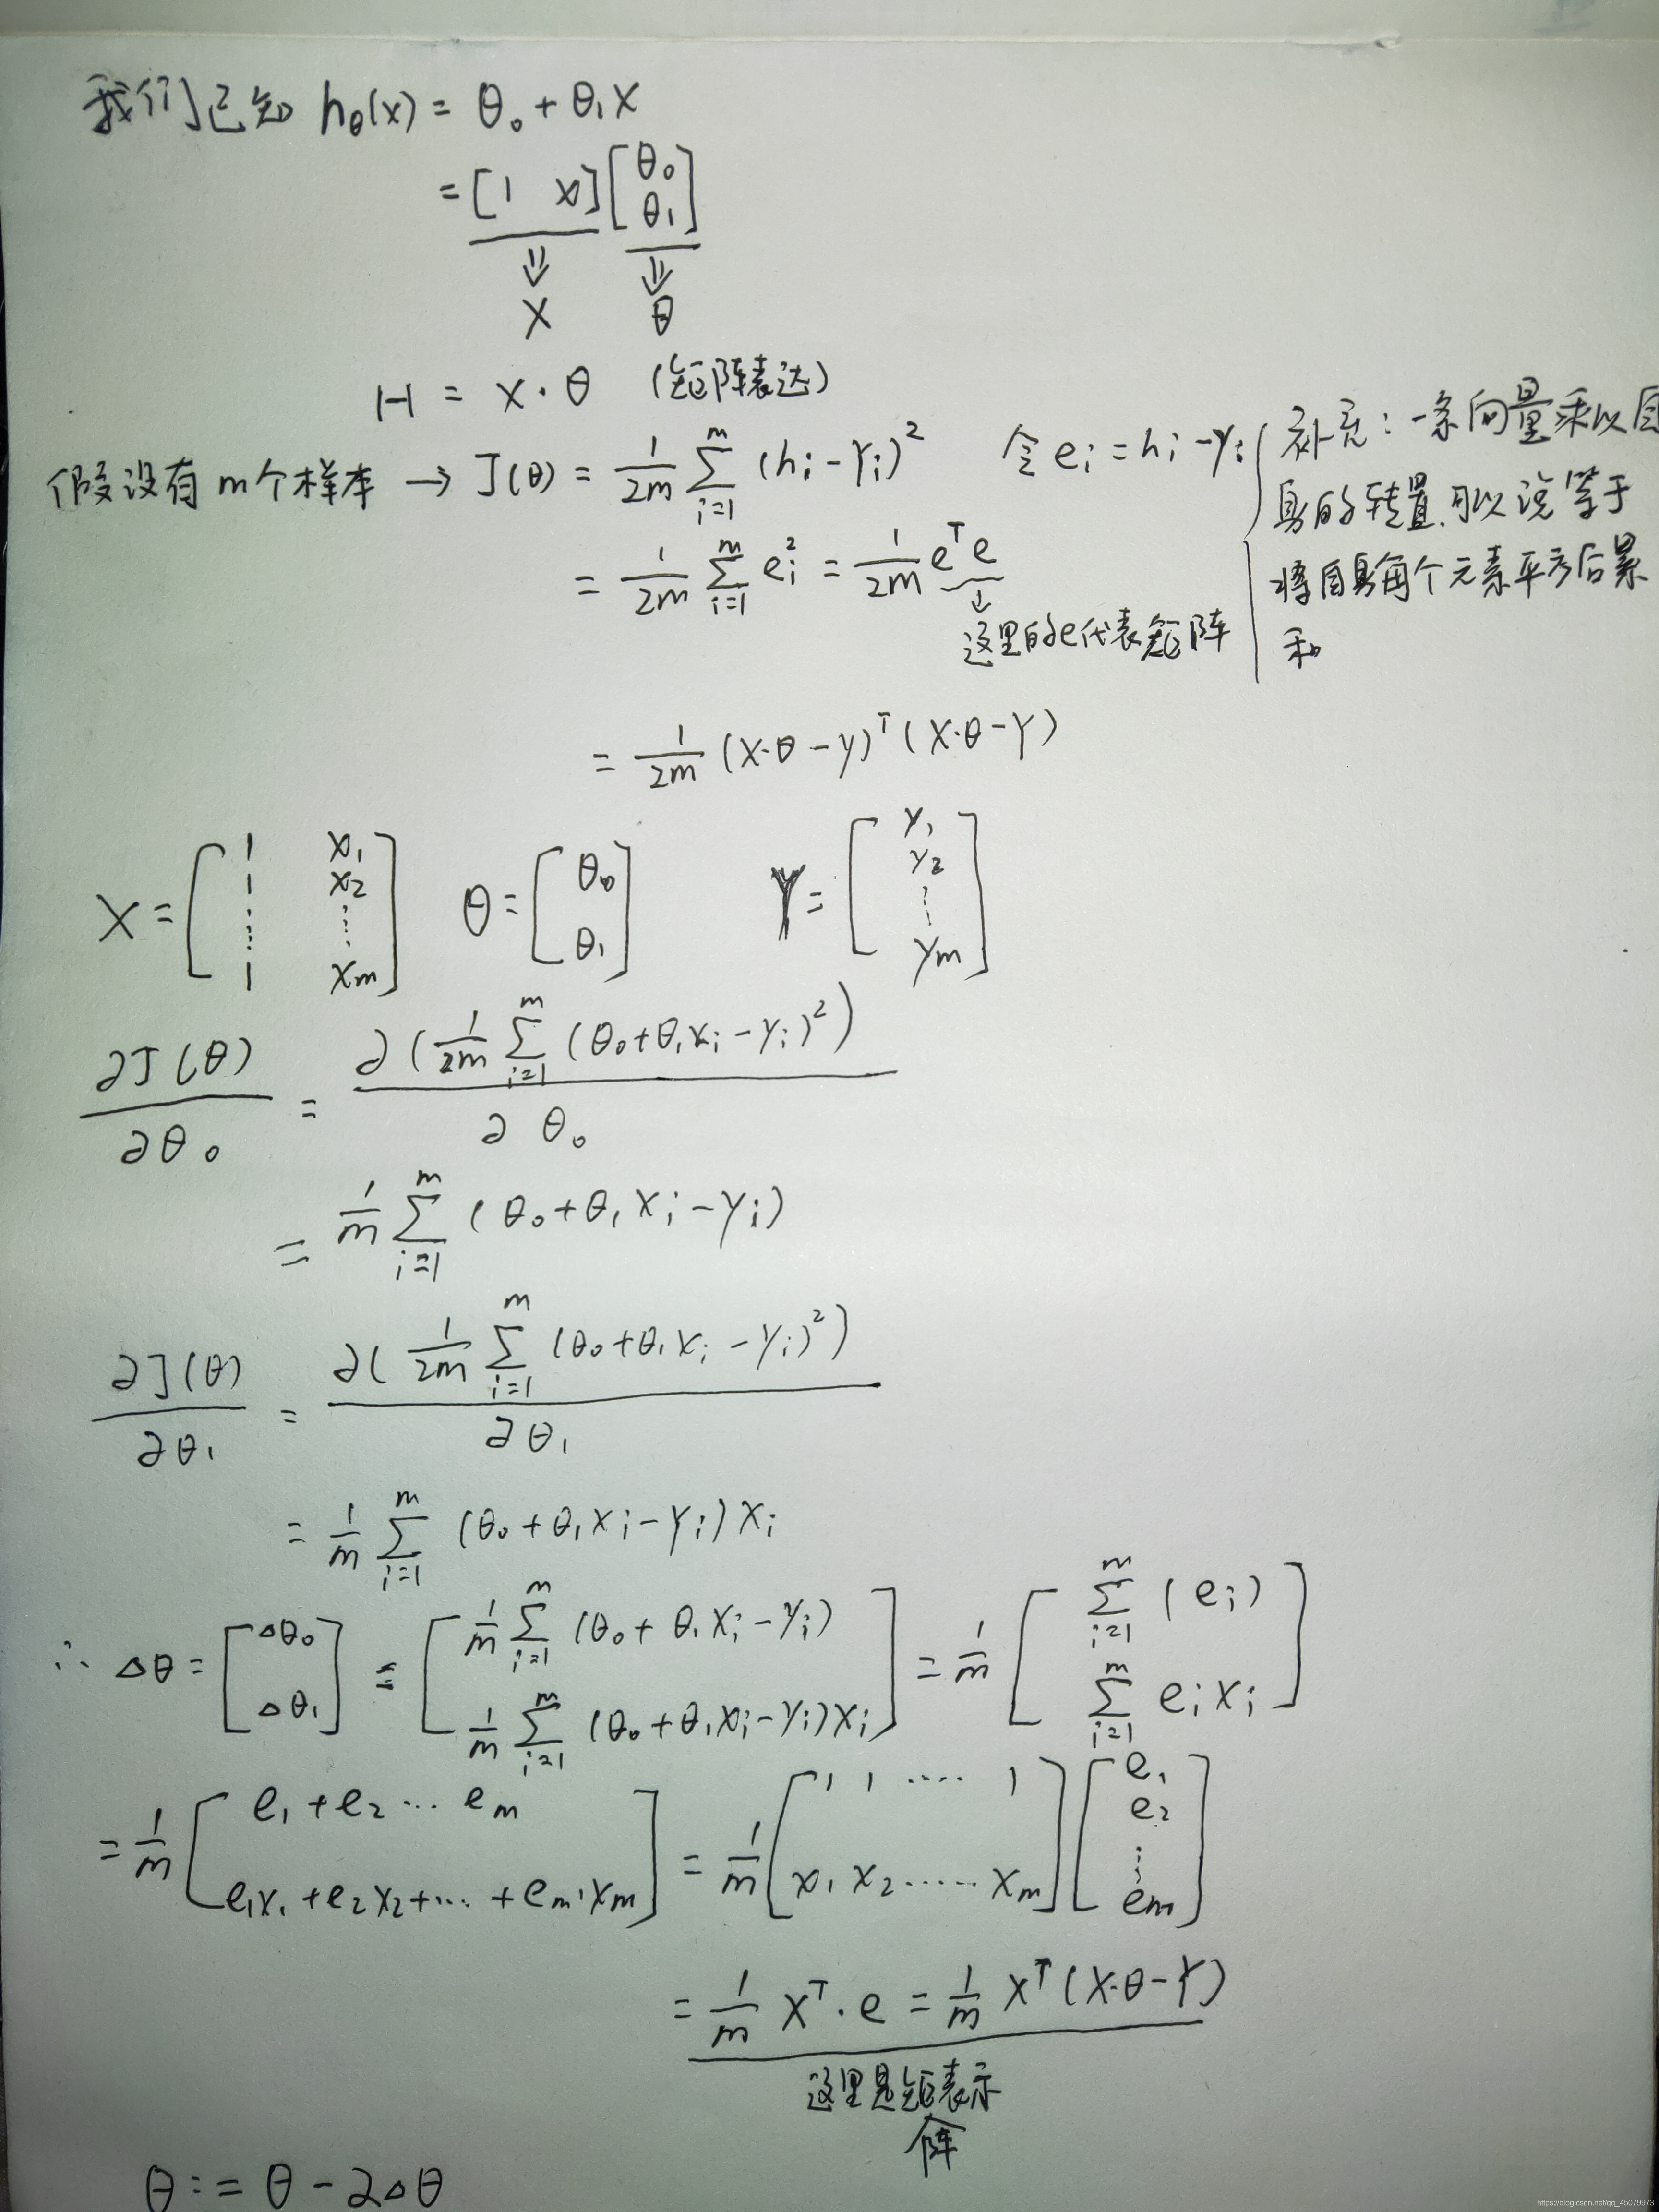 我们已知 hθ(x) = θ₀ + θ₁x
= [1 x] [θ₀ θ₁]
⇓ ⇓
X θ
H = X·θ (矩阵表达)
假设有m个样本 → J(θ) = 1/2m ∑_{i=1}^{m} (hᵢ - yᵢ)² 令 eᵢ = hᵢ - yᵢ
= 1/2m ∑_{i=1}^{m} eᵢ² = 1/2m eᵀe
↓
这里的e代表矩阵
补充：一条向量乘以自
身的转置，可以说等于
将自身每个元素平方后累
和
= 1/2m (X·θ - y)ᵀ (X·θ - Y)
X = [1 x₁; 1 x₂; ⋮ ⋮; 1 xm] θ = [θ₀; θ₁] Y = [y₁; y₂; ⋮; ym]
∂J(θ)/∂θ₀ = ∂(1/2m ∑_{i=1}^{m} (θ₀+θ₁xᵢ-yᵢ)²)/∂θ₀
= 1/m ∑_{i=1}^{m} (θ₀+θ₁xᵢ-yᵢ)
∂J(θ)/∂θ₁ = ∂(1/2m ∑_{i=1}^{m} (θ₀+θ₁xᵢ-yᵢ)²)/∂θ₁
= 1/m ∑_{i=1}^{m} (θ₀+θ₁xᵢ-yᵢ)xᵢ
∴ △θ = [△θ₀; △θ₁] = [1/m ∑_{i=1}^{m} (θ₀+θ₁xᵢ-yᵢ); 1/m ∑_{i=1}^{m} (θ₀+θ₁xᵢ-yᵢ)xᵢ] = 1/m [∑_{i=1}^{m} (eᵢ); ∑_{i=1}^{m} eᵢxᵢ]
= 1/m [e₁+e₂…em; e₁x₁+e₂x₂+…+em·xm] = 1/m [1 1 …… 1; x₁ x₂ …… xm] [e₁; e₂; ⋮; em]
= 1/m Xᵀ·e = 1/m Xᵀ(X·θ-Y)
这里是矩阵表示
θ := θ - 2△θ
https://blog.csdn.net/qq_45079973